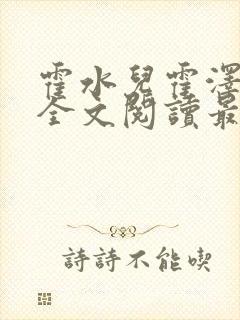 霍水兒霍澤
全文閱讀最
詩詩不能喫